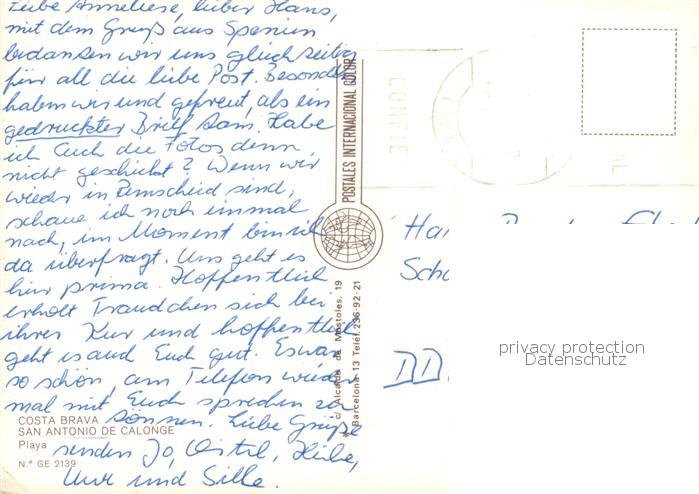 Liebe Anneliese, lieber Hans,
mit dem Gruß aus Spanien
bedanken wir uns gleichzeitig
für all die liebe Post. Besonders
haben wir und gefreut, als ein
gedruckter Brief kam. Habe
ich Euch die Fotos denn
nicht geschickt? Wenn wir
wieder in Remscheid sind,
schaue ich noch einmal
nach, im Moment bin ich
da überfragt. Uns geht es
hier prima. Hoffentlich
erholt Traudchen sich bei
ihrer Kur und hoffentlich
geht es auch Euch gut. Es war
so schön, am Telefon wieder
mal mit Euch sprechen zu
können. Liebe Grüße
senden Jo,
und Silke.
COSTA BRAVA
SAN ANTONIO DE CALONGE
Playa
N.° GE 2139
POSTALES INTERNACIONAL COLOR
c/ Alcalde de Mostoles, 19
Barcelona-13 Telef. 236-92-21
CONFIE
Ha
Sch
DD
privacy protection
Datenschutz